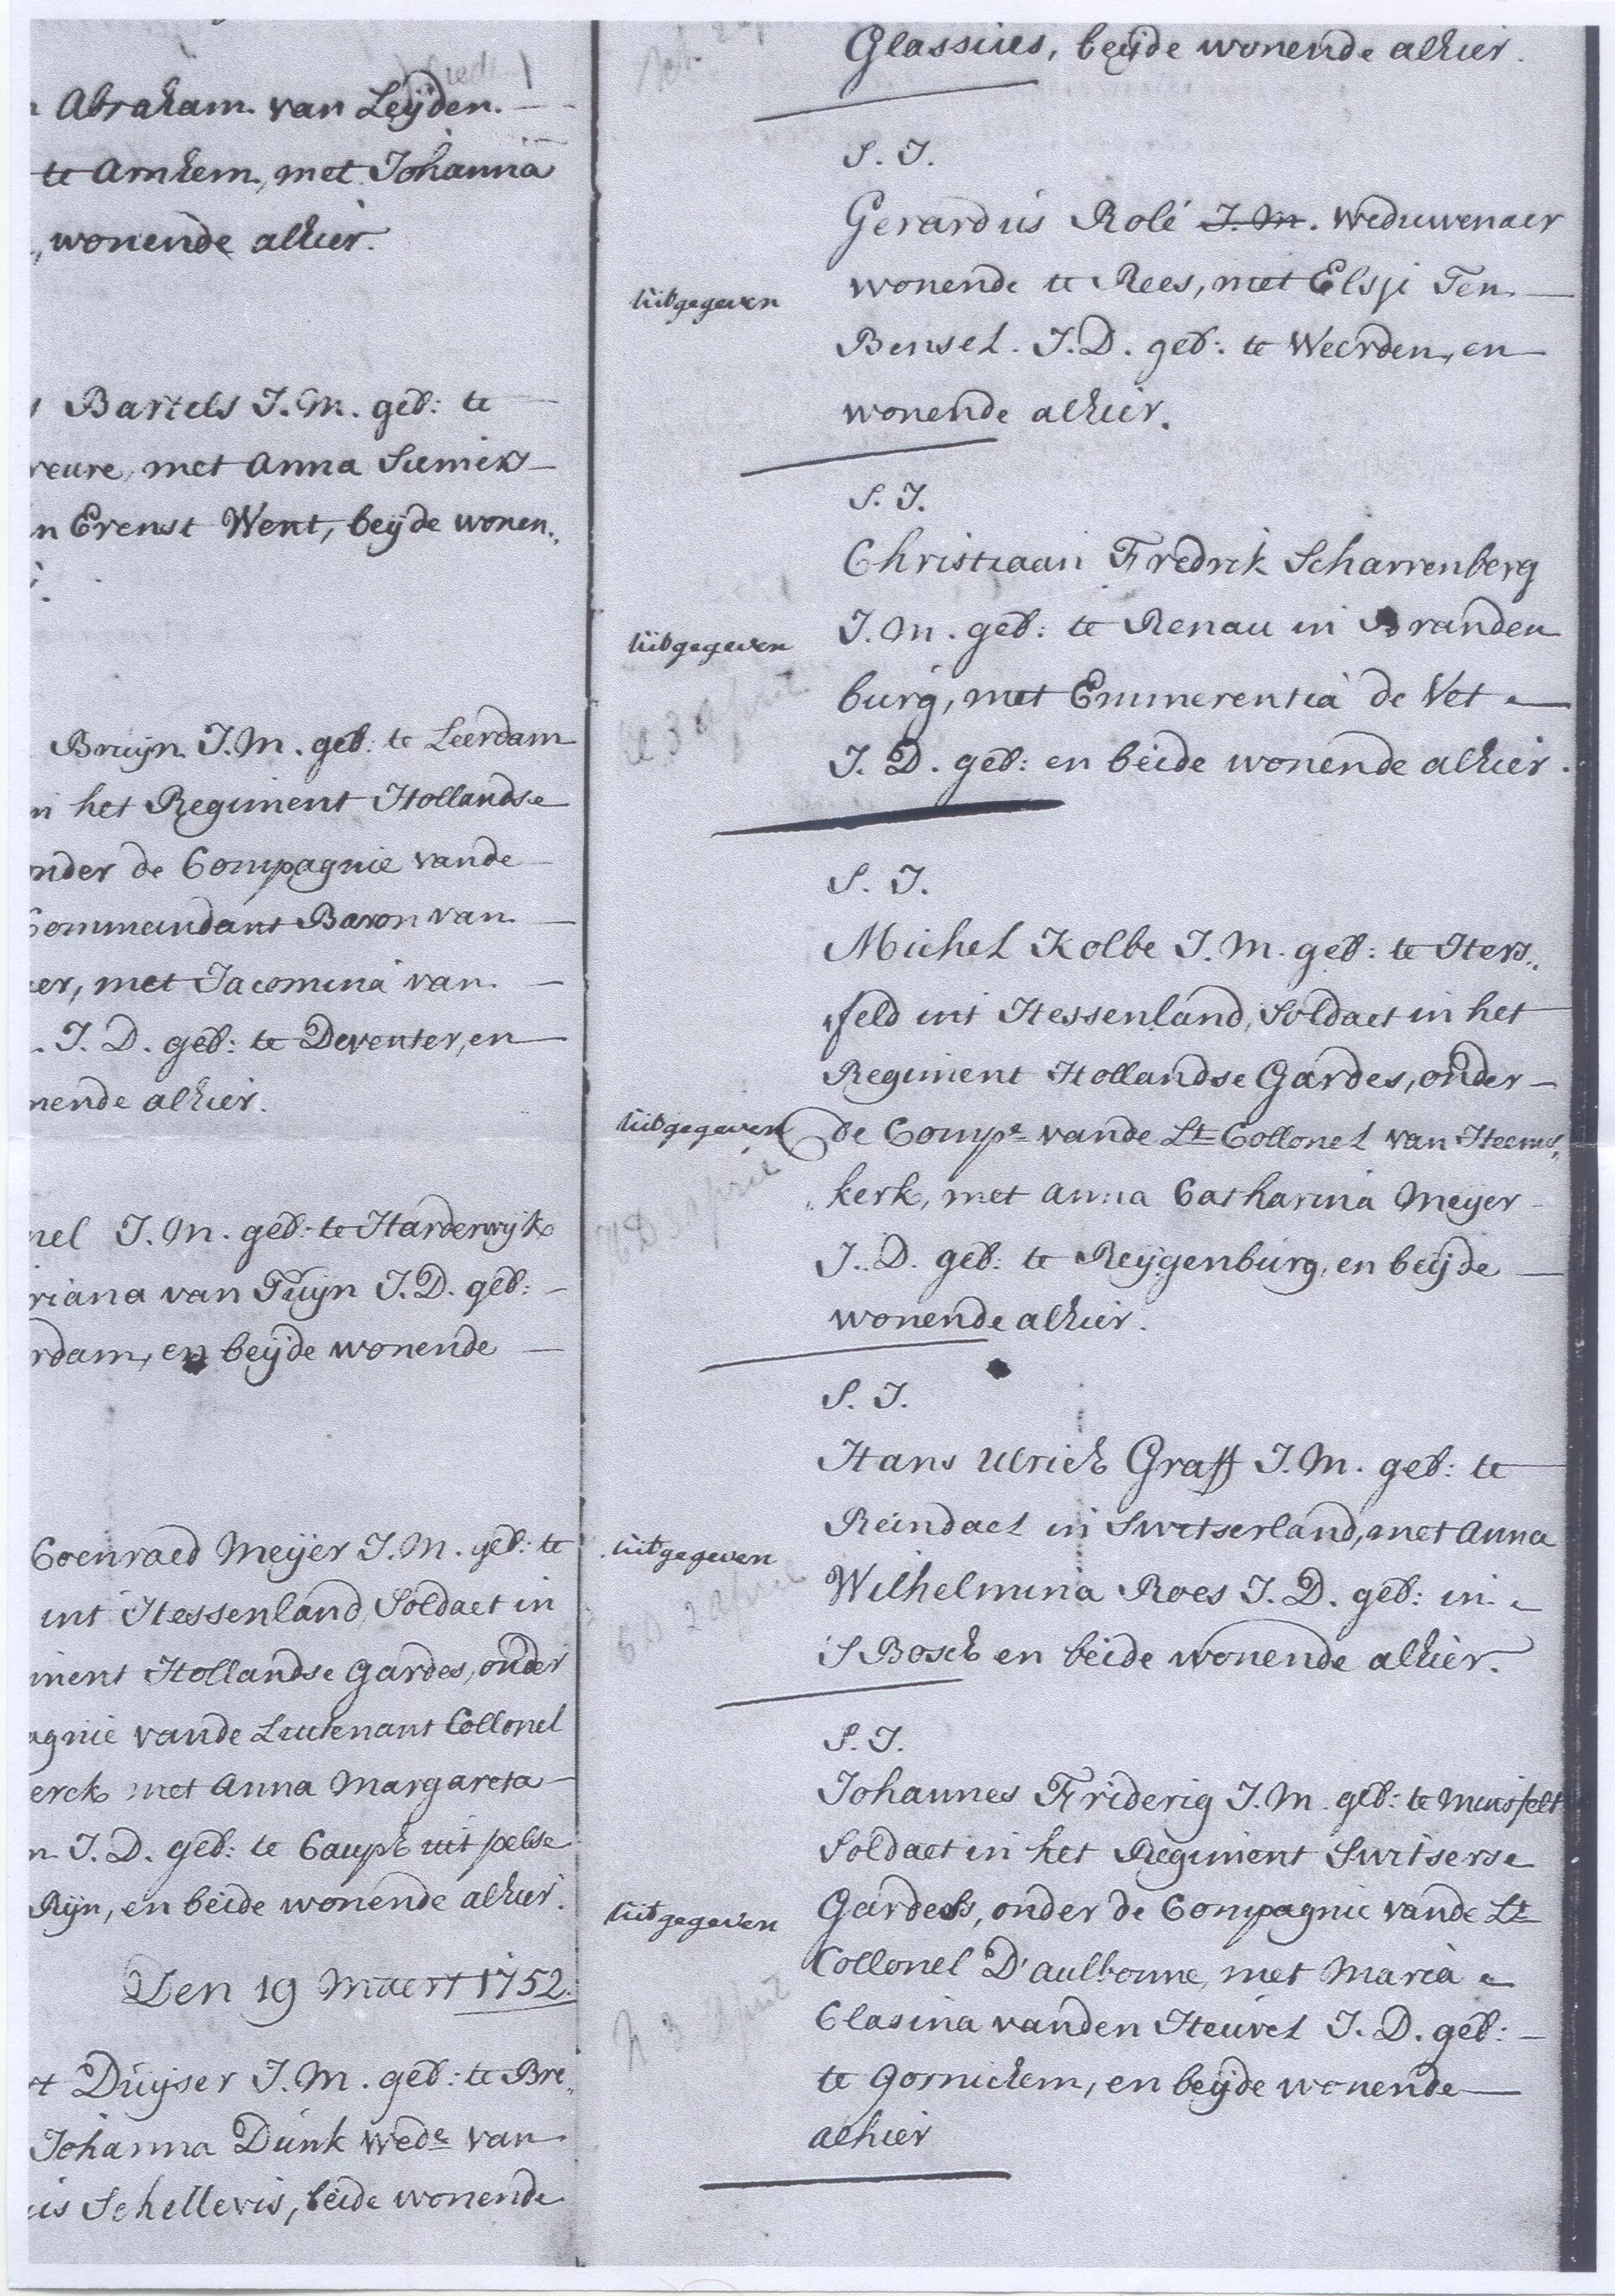 Abraham van Leÿden.
te Arnhem, met Johanna
, wonende alhier.
Bartels J.M. geb: te
reure, met Anna
n Erenst Went, beÿde wonen„
Bruijn J.M. geb: te Leerdam
in het Regiment Hollandse
onder de Compagnie vande
Commandant Baron van
er, met Jacomina van
. J.D. geb: te Deventer, en
nende alhier.
nel J.M. geb: te Harderwijk
riana van Tuijn J.D. geb:
rdam, en beÿde wonende
Coenraed Meijer J.M. geb: te
uit Hessenland, Soldaet in
ment Hollandse Gardes, onder
agnie vande Leutenant Collonel
erck met Anna Margareta
n J.D. geb: te uit
Rijn, en beide wonende alhier.
Den 19 Maert 1752.
t Duijser J.M. geb: te Bre„
Johanna Dunk wede van
is Schellevis, beide wonende
Glassius, beijde wonende alhier.
S. J.
Gerardus Rolé J.M. Weduwenaer
wonende te Rees, met Elsje Ten
uitgegeven
Bensel. J.D. geb: te Weerden, en
wonende alhier.
S. J.
Christiaan Fredrik Scharrenberg
uitgegeven
J.M. geb: te Renau in Branden
burg, met Emmerentia de Vet
3 april
J.D. geb: en beide wonende alhier.
S. J.
Michel Kolbe J.M. geb: te Hers„
feld uit Hessenland, Soldaet in het
Regiment Hollandse Gardes, onder
uitgegeven
de Compe vande Lt Collonel van Heems„
3 april
kerk, met Anna Catharina Meijer
J.D. geb: te Reijgenburg, en beijde
wonende alhier.
S. J.
Hans Ulrich Graff J.M. geb: te
Reindael in Switserland, met Anna
uitgegeven
Wilhelmina Roes J.D. geb: in
2 april
S Bosch en beide wonende alhier.
S. J.
Johannes Friderig J.M. geb: te
Soldaet in het Regiment Switserse
uitgegeven
Gardes, onder de Compagnie vande Lt
Collonel D'aulbonne, met Maria
3 april
Clasina vanden Heuvel J.D. geb:
te Gornichem, en beijde wonende
alhier